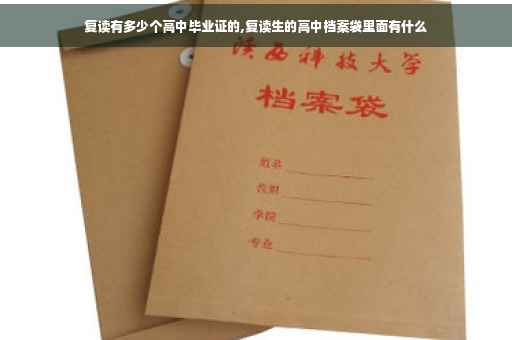 复读有多少个高中毕业证的,复读生的高中档案袋里面有什么
陕西科技大学
档案袋
姓名
学院
专业